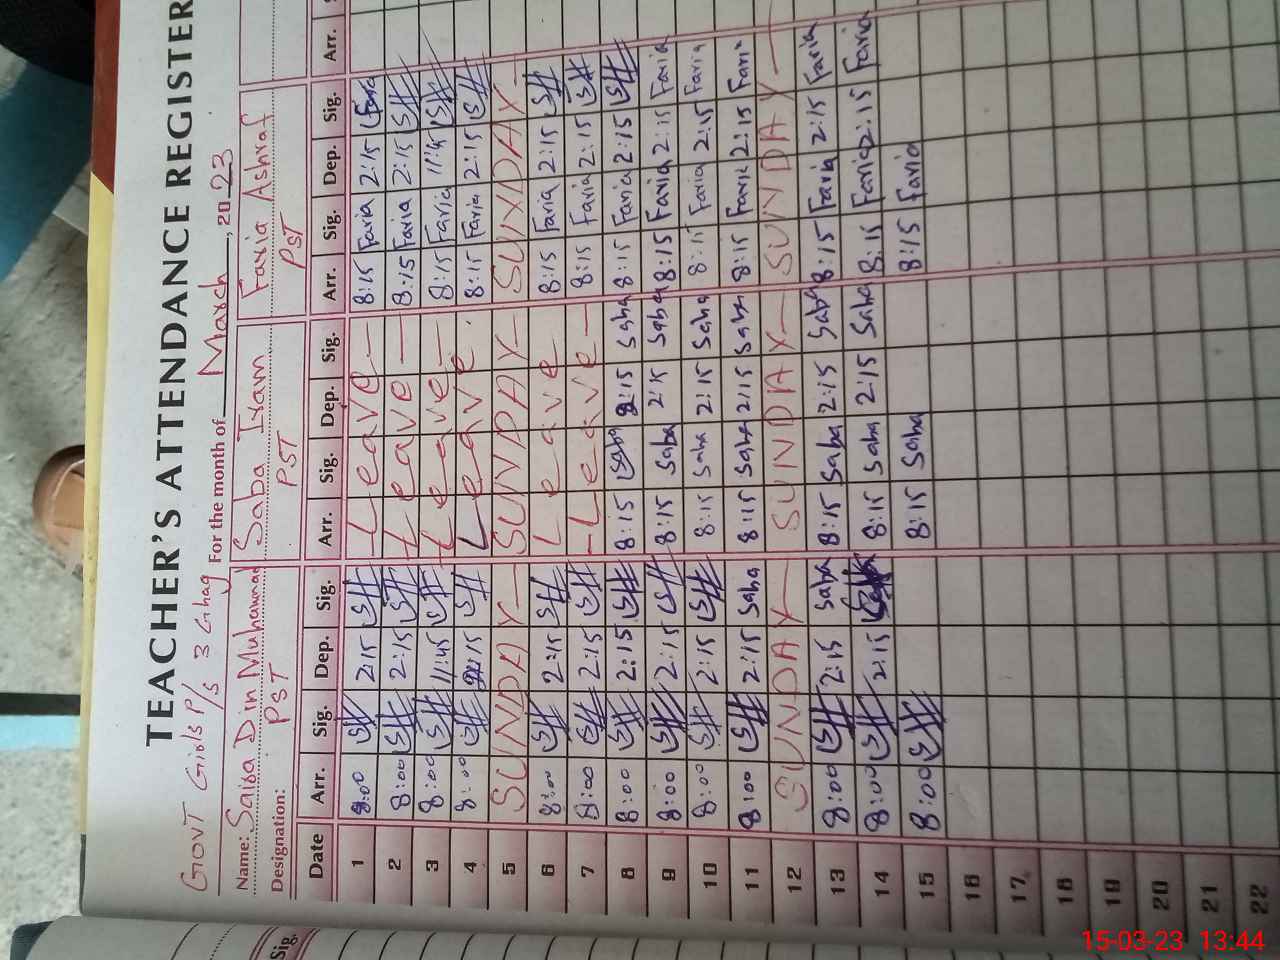 TEACHER'S ATTENDANCE REGISTER
GOVT Girls P/S 3 Ghag For the month of March, 2023
Name: Saiba Din Muhammad Saba Iram Faria Ashraf
Designation: PST PST PST
Date Arr. Sig. Dep. Sig. Arr. Sig. Dep. Sig. Arr. Sig. Dep. Sig. Arr.
1 8:00 2:15 Leave 8:15 Faria 2:15 Faria
2 8:00 2:15 Leave 8:15 Faria 2:15
3 8:00 11:45 Leave 8:15 Faria 11:45
4 8:00 2:15 Leave 8:15 Faria 2:15
5 SUNDAY SUNDAY SUNDAY
6 8:00 2:15 Leave 8:15 Faria 2:15
7 8:00 2:15 Leave 8:15 Faria 2:15
8 8:00 2:15 8:15 Saba 2:15 Saba 8:15 Faria 2:15
9 8:00 2:15 8:15 Saba 2:15 Saba 8:15 Faria 2:15 Faria
10 8:00 2:15 8:15 Saba 2:15 Saba 8:15 Faria 2:15 Faria
11 8:00 2:15 Saba 8:15 Saba 2:15 Saba 8:15 Faria 2:15 Faria
12 SUNDAY SUNDAY SUNDAY
13 8:00 2:15 Saba 8:15 Saba 2:15 Saba 8:15 Faria 2:15 Faria
14 8:00 2:15 8:15 Saba 2:15 Saba 8:15 Faria 2:15 Faria
15 8:00 8:15 Saba 8:15 Faria
16
17
18
19
20
21
22
Sig.
15-03-23 13:44